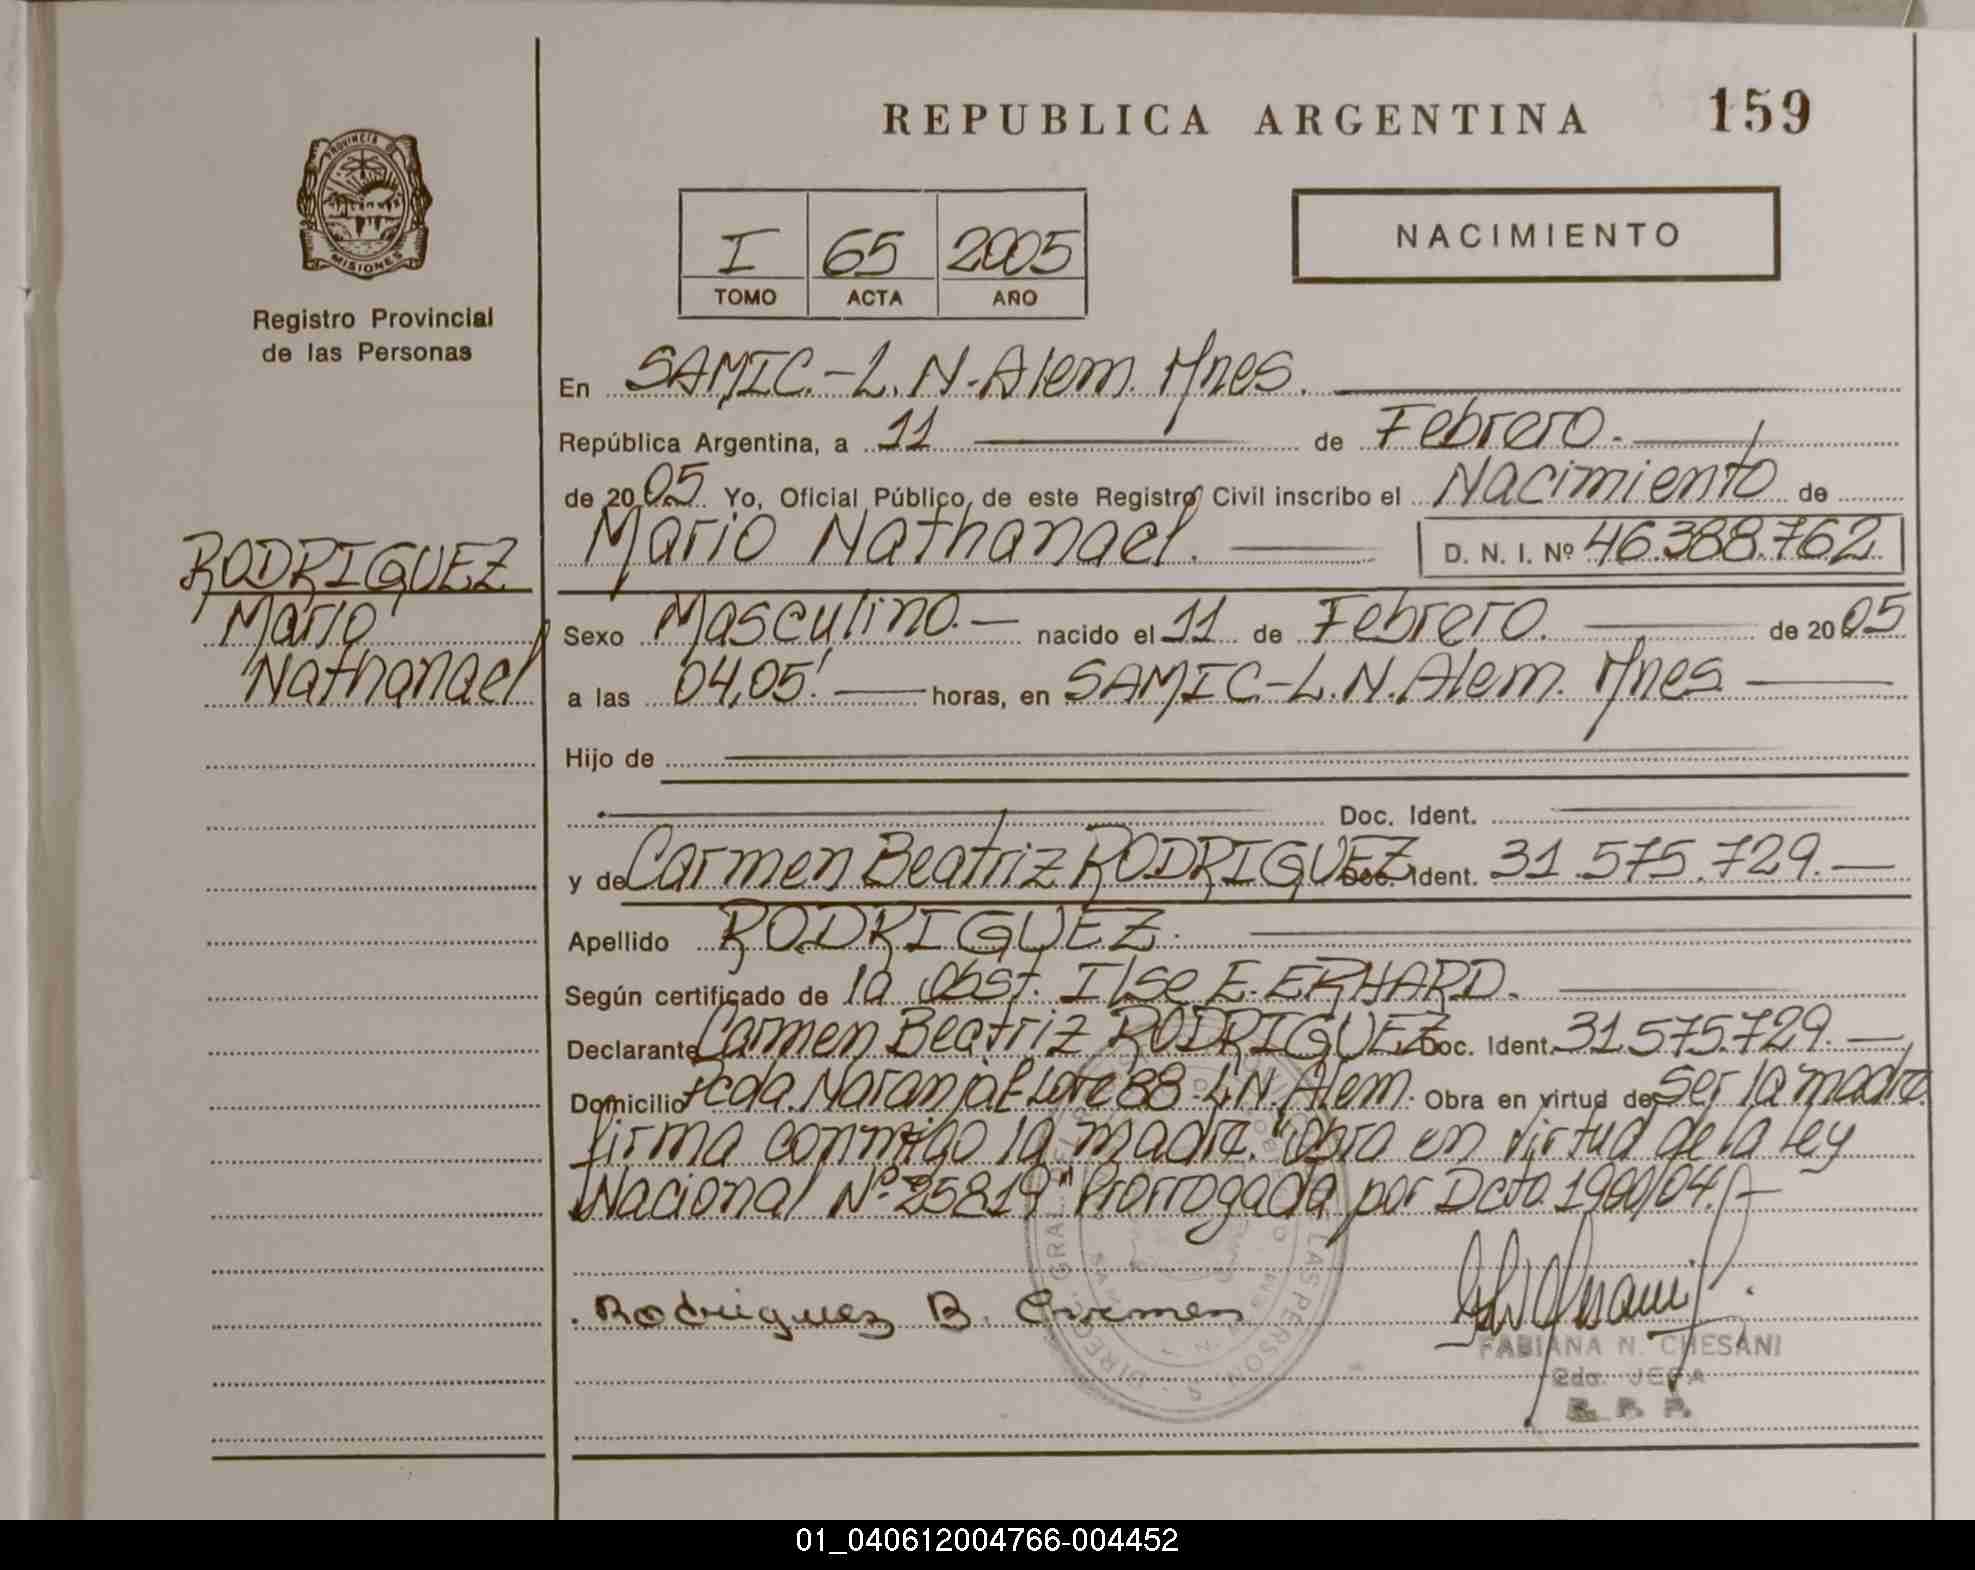 REPUBLICA ARGENTINA 159
PROVINCIA DE
MISIONES
I 65 2005
TOMO ACTA AÑO
NACIMIENTO
Registro Provincial
de las Personas
En SAMIC.-L.N.Alem. Mnes.
República Argentina, a 11 de Febrero.
de 2005 Yo, Oficial Público de este Registro Civil inscribo el Nacimiento de
Mario Nathanael. D. N. I. Nº 46.388.762
RODRIGUEZ
Mario
Nathanael
Sexo Masculino.- nacido el 11 de Febrero. de 2005
a las 04,05'. horas, en SAMIC-L.N.Alem. Mnes
Hijo de
Doc. Ident.
y de Carmen Beatriz RODRIGUEZ Doc. Ident. 31.575.729.-
Apellido RODRIGUEZ.
Según certificado de la Obst. Ilse E. ERHARD.
Declarante Carmen Beatriz RODRIGUEZ Doc. Ident. 31.575.729.-
Domicilio Pcda. Naranja Lote 88-L.N.Alem. Obra en virtud de Ser la madre
firma conmigo la madre. "Obra en virtud de la Ley
Nacional Nº 25819" Prorrogada por Dcto. 1990/04.-
Rodriguez B. Carmen
FABIANA N. CHESANI
2da. JEFA
R. P. P.
01_040612004766-004452